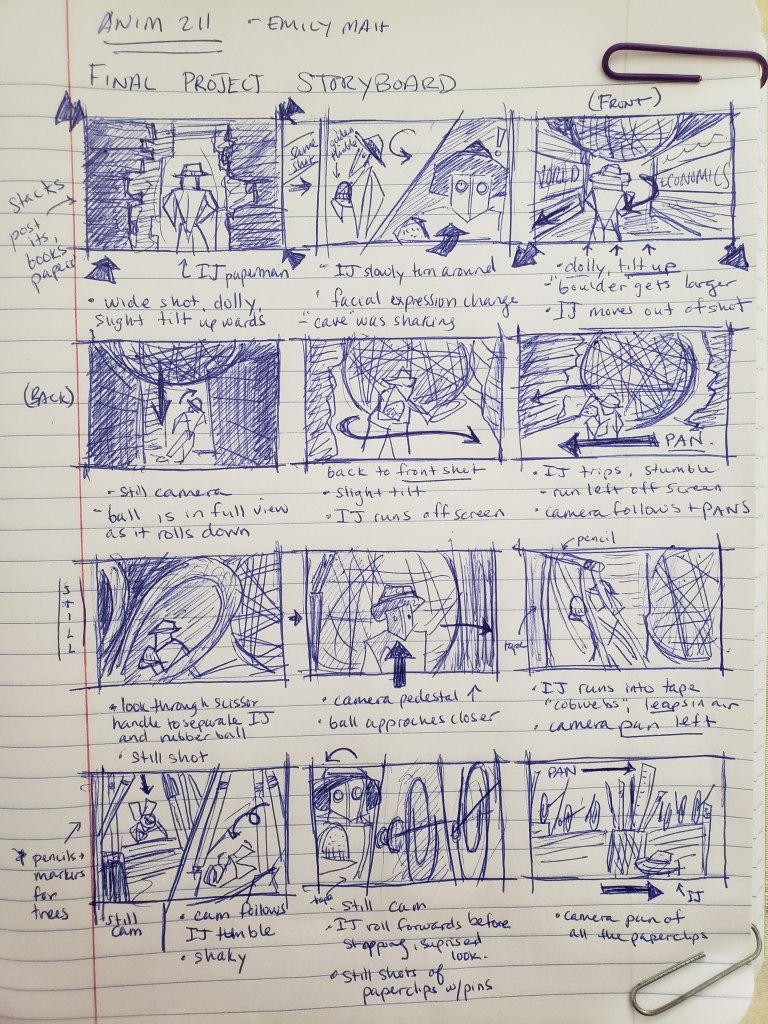 ANIM 211 - EMILY MAH
FINAL PROJECT STORYBOARD
stacks
post its,
books
papers
same shot
golden thimble
!
(FRONT)
WORLD
ECONOMICS
IJ paperman
• wide shot, dolly,
slight tilt upwards
• IJ slowly turn around
facial expression change
- "cave" was shaking
• dolly, tilt up
- boulder gets larger
• IJ moves out of shot
(BACK)
PAN.
• still camera
- ball is in full view
as it rolls down
back to front shot
• slight tilt
• IJ runs off screen
• IJ trips, stumble
- run left off screen
• camera follows + PANS
STILL
pencil
tape
• look through scissor
handle to separate IJ
and rubber ball
• still shot
• camera pedestal ↑
• ball approches closer
• IJ runs into tape
"cobwebs", leaps in air
• camera pan left
* pencils +
markers
for
trees
PAN
tape
IJ
still
cam
• cam follows
IJ tumble
• shaky
• still cam
• IJ roll forwards before
stopping, suprised
look.
• still shots of
paperclips w/pins
• camera pan of
all the paperclips